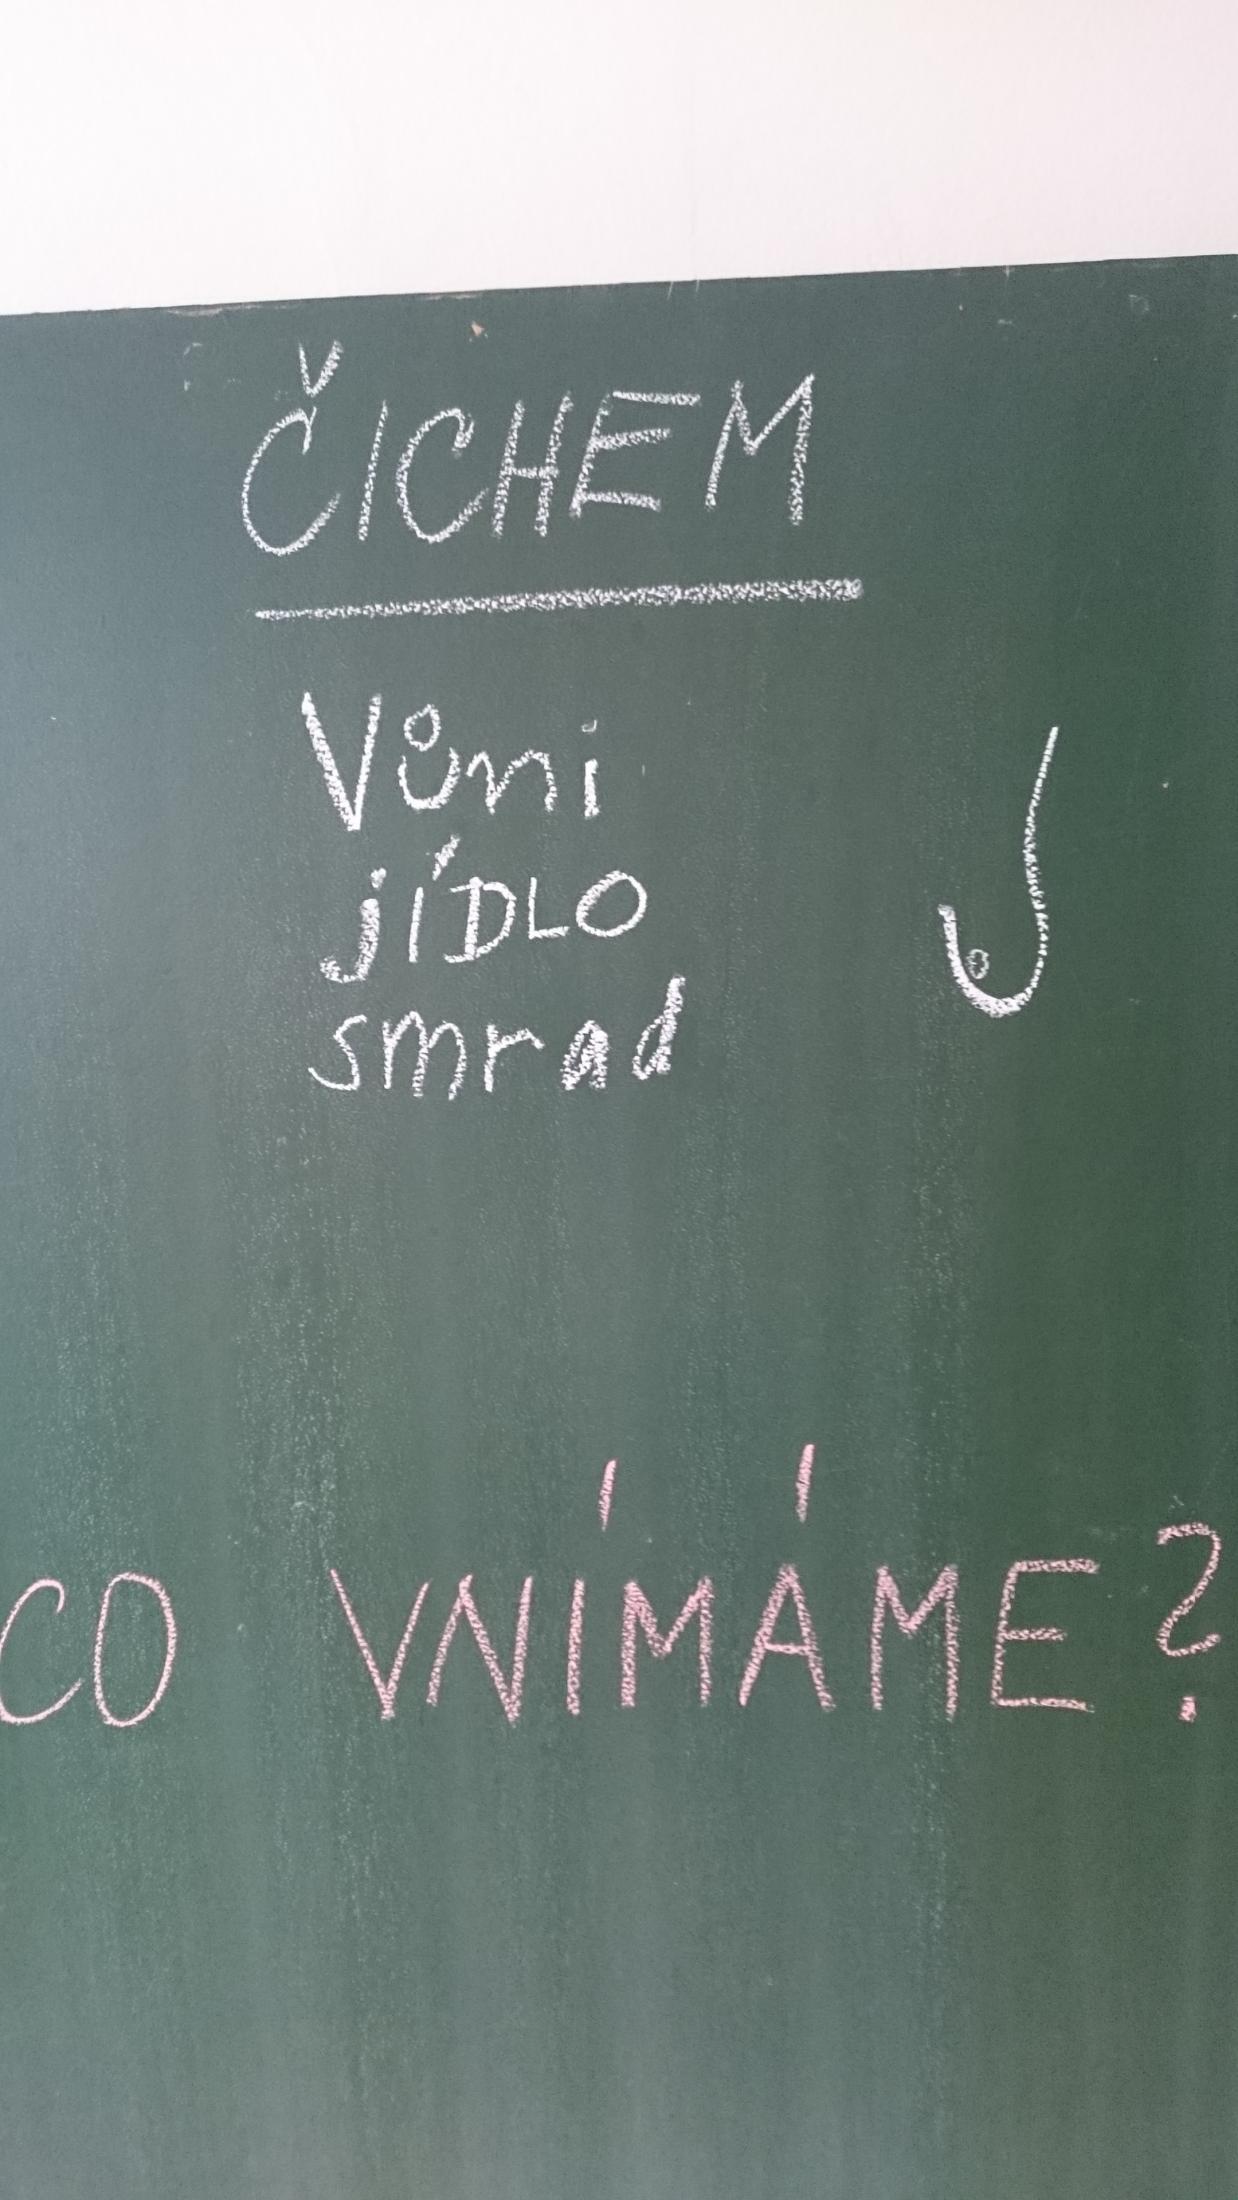 ČICHEM
Vůni
jÍDLO
smrad
CO VNÍMÁME?